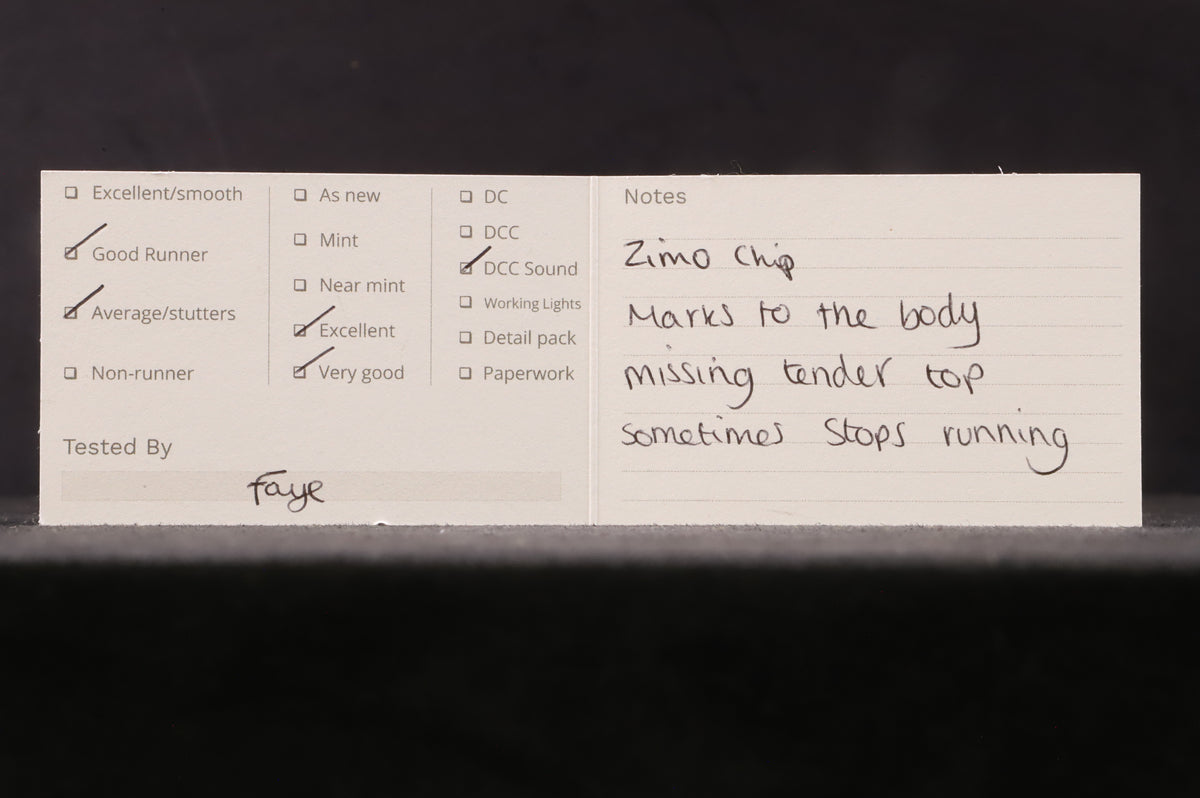 Excellent/smooth
Good Runner
Average/stutters
Non-runner
As new
Mint
Near mint
Excellent
Very good
DC
DCC
DCC Sound
Working Lights
Detail pack
Paperwork
Tested By
Faye
Notes
Zimo Chip
Marks to the body
missing tender top
sometimes stops running